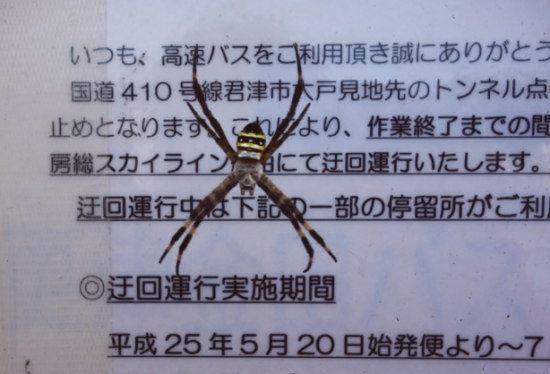 いつも、高速バスをご利用頂き誠にありがとう
国道410号線君津市大戸見地先のトンネル点
止めとなります。これにより、作業終了までの間
房総スカイライン 由にて迂回運行いたします。
迂回運行中は下記の一部の停留所がご利
◎迂回運行実施期間
平成25年5月20日始発便より～7